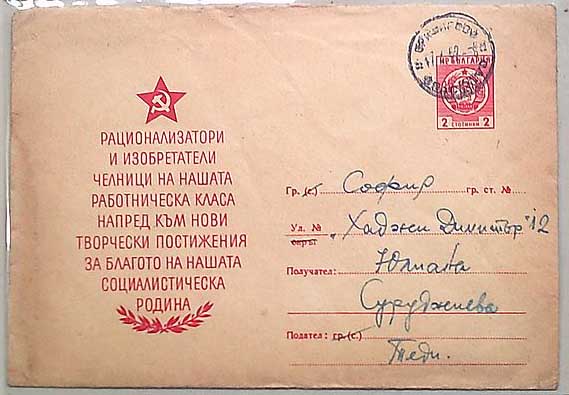 РАЦИОНАЛИЗАТОРИ
И ИЗОБРЕТАТЕЛИ
ЧЕЛНИЦИ НА НАШАТА
РАБОТНИЧЕСКА КЛАСА
НАПРЕД КЪМ НОВИ
ТВОРЧЕСКИ ПОСТИЖЕНИЯ
ЗА БЛАГОТО НА НАШАТА
СОЦИАЛИСТИЧЕСКА
РОДИНА
НР БЪЛГАРИЯ
2 СТОТИНКИ 2
Гр. (с.) София гр. ст. №
Ул. № „Хаджи Димитър" 12
окръг
Получател: Юлиана
Суруджиева
Подател: гр. (с.)
Теди.